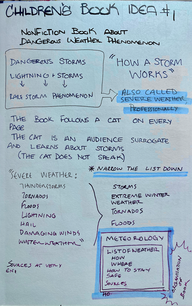 CHILDREN'S BOOK IDEA #1
NONFICTION BOOK ABOUT
DANGEROUS WEATHER PHENOMENON
DANGEROUS STORMS
LIGHTNING + STORMS
RARE STORM PHENOMENON
"HOW A STORM
WORKS"
ALSO CALLED
SEVERE WEATHER
PROFESSIONALLY
THE BOOK FOLLOWS A CAT ON EVERY
PAGE
THE CAT IS AN AUDIENCE SURROGATE
AND LEARNS ABOUT STORMS
(THE CAT DOES NOT SPEAK)
* NARROW THE LIST DOWN
"SEVERE WEATHER"
THUNDERSTORMS
TORNADOS
FLOODS
LIGHTNING
HAIL
DAMAGING WINDS
WINTER WEATHER
STORMS
EXTREME WINTER
WEATHER
TORNADOS
FLOODS
METEOROLOGY
LIST OF WEATHER
HOW
WHERE
HOW TO STAY
SAFE
SOURCES
SOURCES AT VERY
END